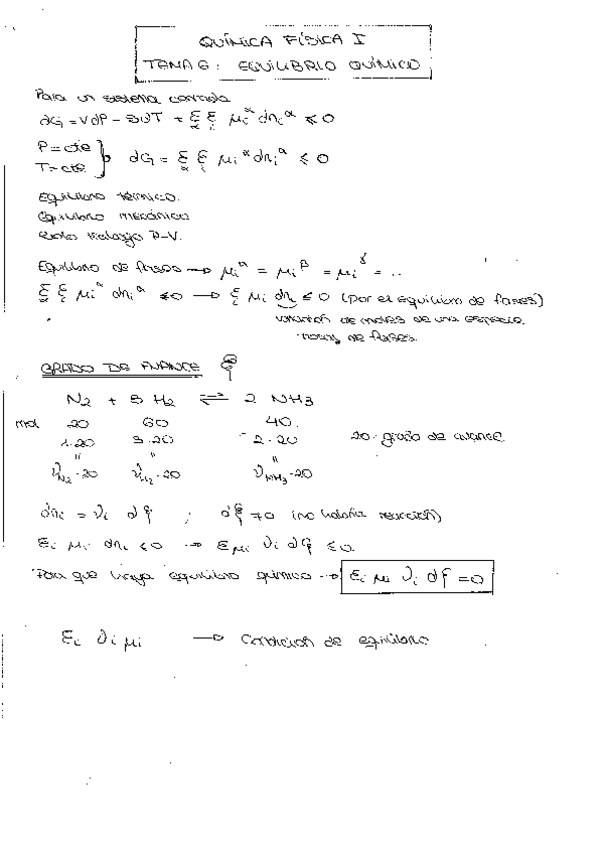 QUÍMICA FÍSICA I
TEMA 6: EQUILIBRIO QUÍMICO
Para un sistema cerrado
dG = VdP - SdT + Σ Σ μi^α dni^α ≤ 0
P = cte
T = cte } dG = Σ Σ μi^α dni^α ≤ 0
Equilibrio térmico.
Equilibrio mecánico
Solo trabajo P-V.
Equilibrio de fases → μi^α = μi^β = μi^γ = ..
Σ Σ μi^α dni^α ≤ 0 → Σ μi dni ≤ 0 (Por el equilibrio de fases)
variación de moles de una especie.
de fases.
GRADO DE AVANCE ξ
N2 + 3 H2 ⇌ 2 NH3
mol 20 60 40.
1·20 3·20 -2·20 20 · grado de avance.
" " "
νN2·20 νH2·20 νNH3·20
dni = νi dξ ; dξ ≠ 0 (no habría reacción)
Σi μi dni ≤ 0 → Σ μi νi dξ ≤ 0
Para que haya equilibrio químico → Σi μi νi dξ = 0
Σi νi μi → Condición de equilibrio